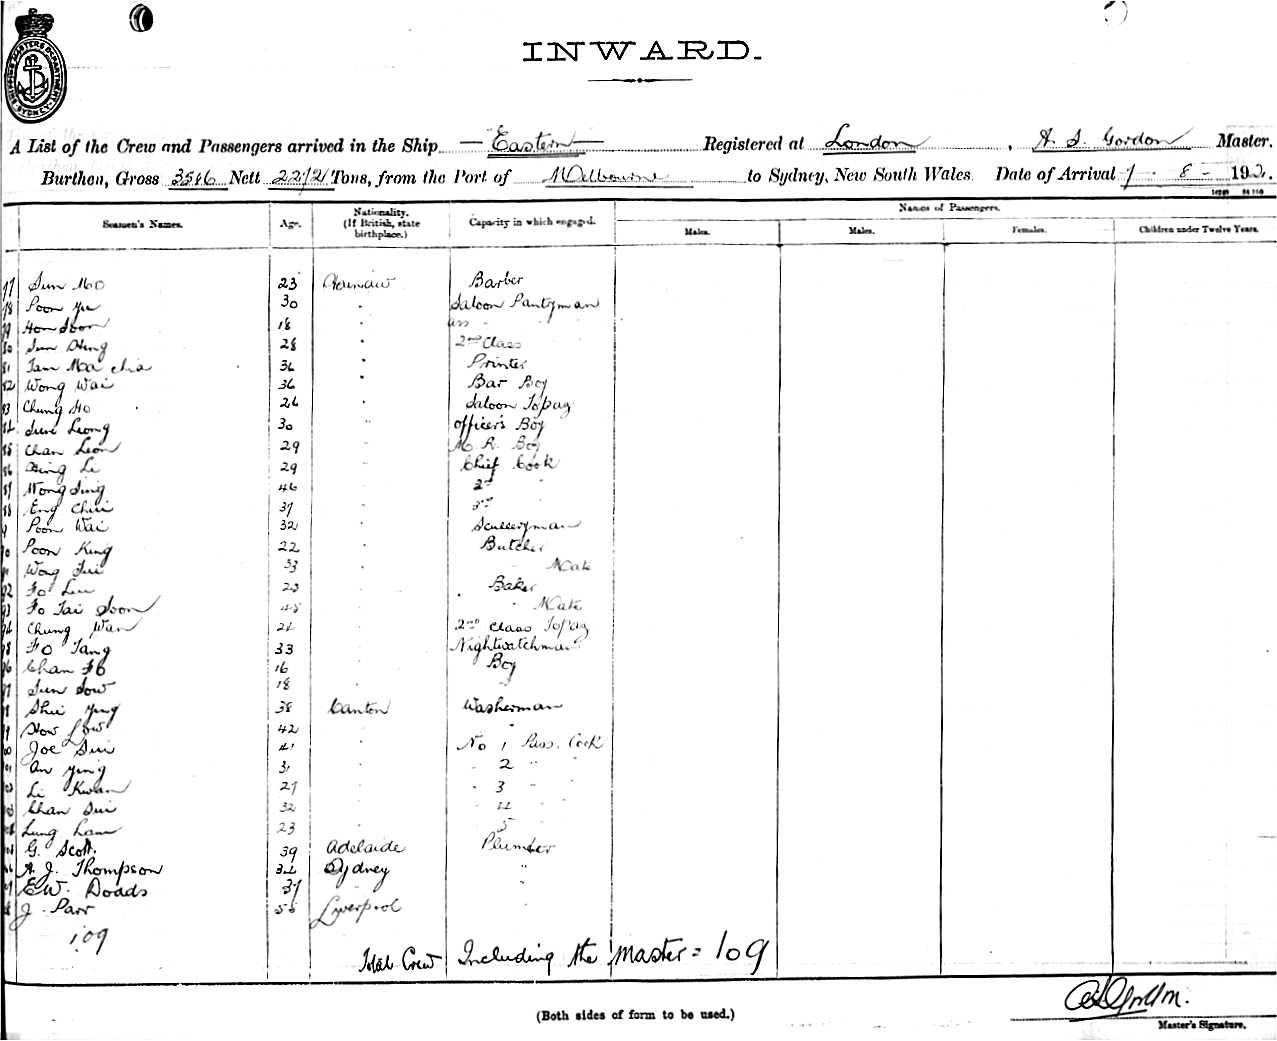 INWARD.
SHIPPING MASTERS DEPARTMENT SYDNEY
A List of the Crew and Passengers arrived in the Ship Eastern Registered at London, A S. Gordon Master.
Burthen, Gross 3586 Nett 2212 Tons, from the Port of Melbourne to Sydney, New South Wales. Date of Arrival 1 - 8 - 192.
Seamen's Names. Age. Nationality. (If British, state birthplace.) Capacity in which engaged. Names of Passengers.
Males. Males. Females. Children under Twelve Years.
77 Sun Mo 23 Barber
78 Poon Yu 30 Saloon Pantryman
79 Hon Soon 18 Ass "
80 Sun Hing 28 2nd Class
81 Tam Ma Cha 36 Printer
82 Wong Wai 36 Bar Boy
83 Chung Ho 26 Saloon Topaz
84 Sun Leong 30 Officer's Boy
85 Chan Leon 29 M. R. Boy
86 Li 29 Chief Cook
87 Wong Sing 46 2nd "
88 Eng Chui 37 3rd
89 Poon Wai 32 Sculleryman
90 Poon King 22 Butcher
91 Wong Sui 33 " Mate
92 Fo Lin 23 Baker
93 Fo Tai Soon 45 " Mate
94 Chung Wan 24 2nd Class Topaz
95 Fo Tang 33 Nightwatchman
96 Chan Fo 16 Boy
97 Sun Sow 18 "
98 Shui Ying 38 Canton Washerman
99 How Low 42 " "
100 Joe Sui 41 " No 1 Pass. Cook
101 An Ying 31 " 2 " "
102 Li Kwan 27 " 3 "
103 Chan Sui 32 " 4 "
104 Lung Lam 23 " 5
105 G. Scott. 39 Adelaide Plumber
106 A. J. Thompson 34 Sydney "
107 E W. Doads 37 "
108 J. Parr 55 Liverpool "
109
Total Crew Including the Master = 109
(Both sides of form to be used.)
Master's Signature.